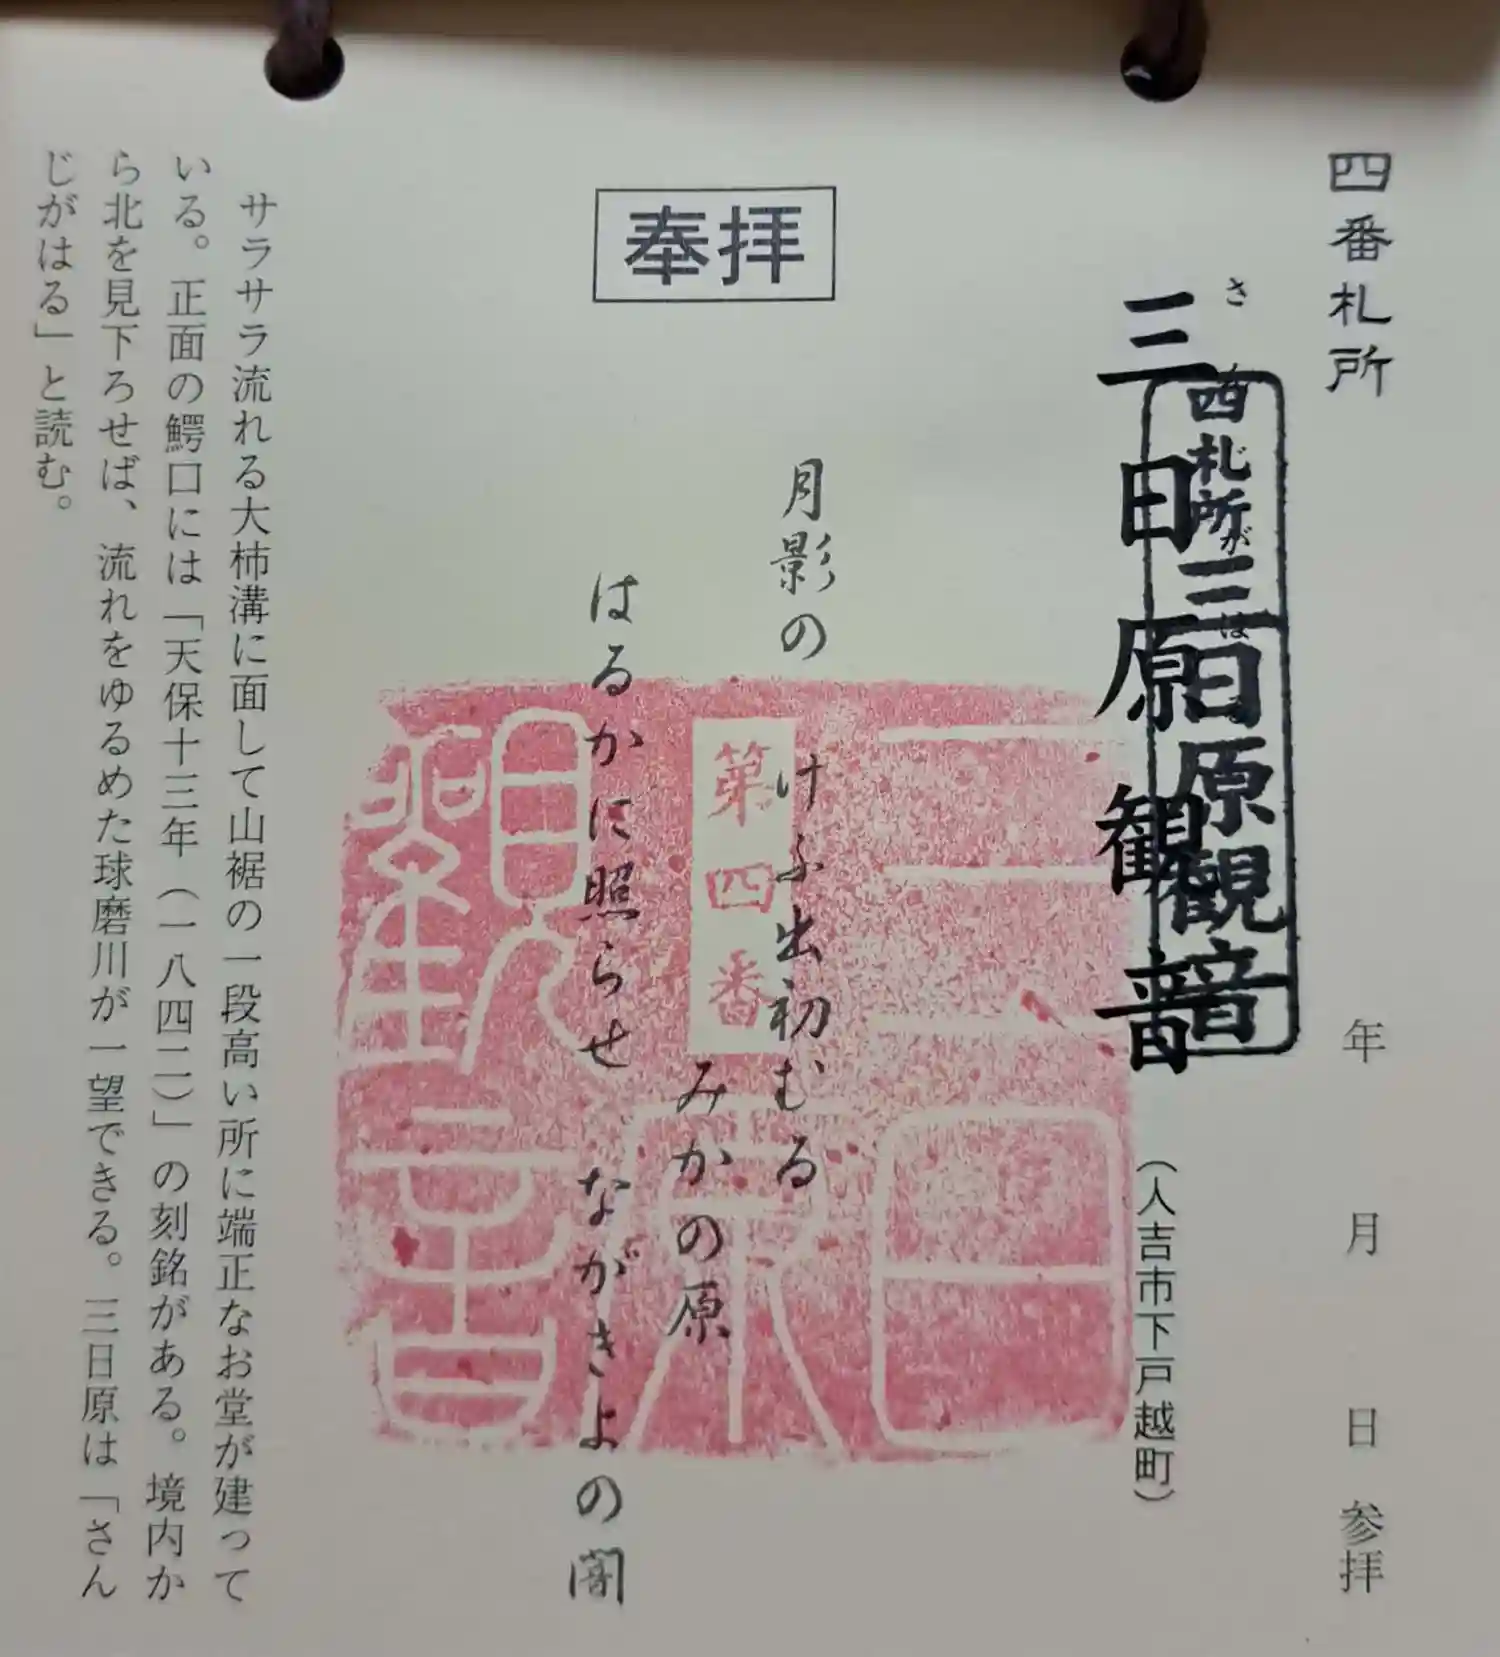 四番札所
年 月 日 参拝
さんじがはる
三日原観音
四札所 三日原観音
(人吉市下戸越町)
奉拝
月影の けふ出初むる
みかの原
はるかに照らせ ながきよの闇
第四番
三日原観音
サラサラ流れる大柿溝に面して山裾の一段高い所に端正なお堂が建って
いる。正面の鰐口には「天保十三年(一八四二)」の刻銘がある。境内か
ら北を見下ろせば、流れをゆるめた球磨川が一望できる。三日原は「さん
じがはる」と読む。